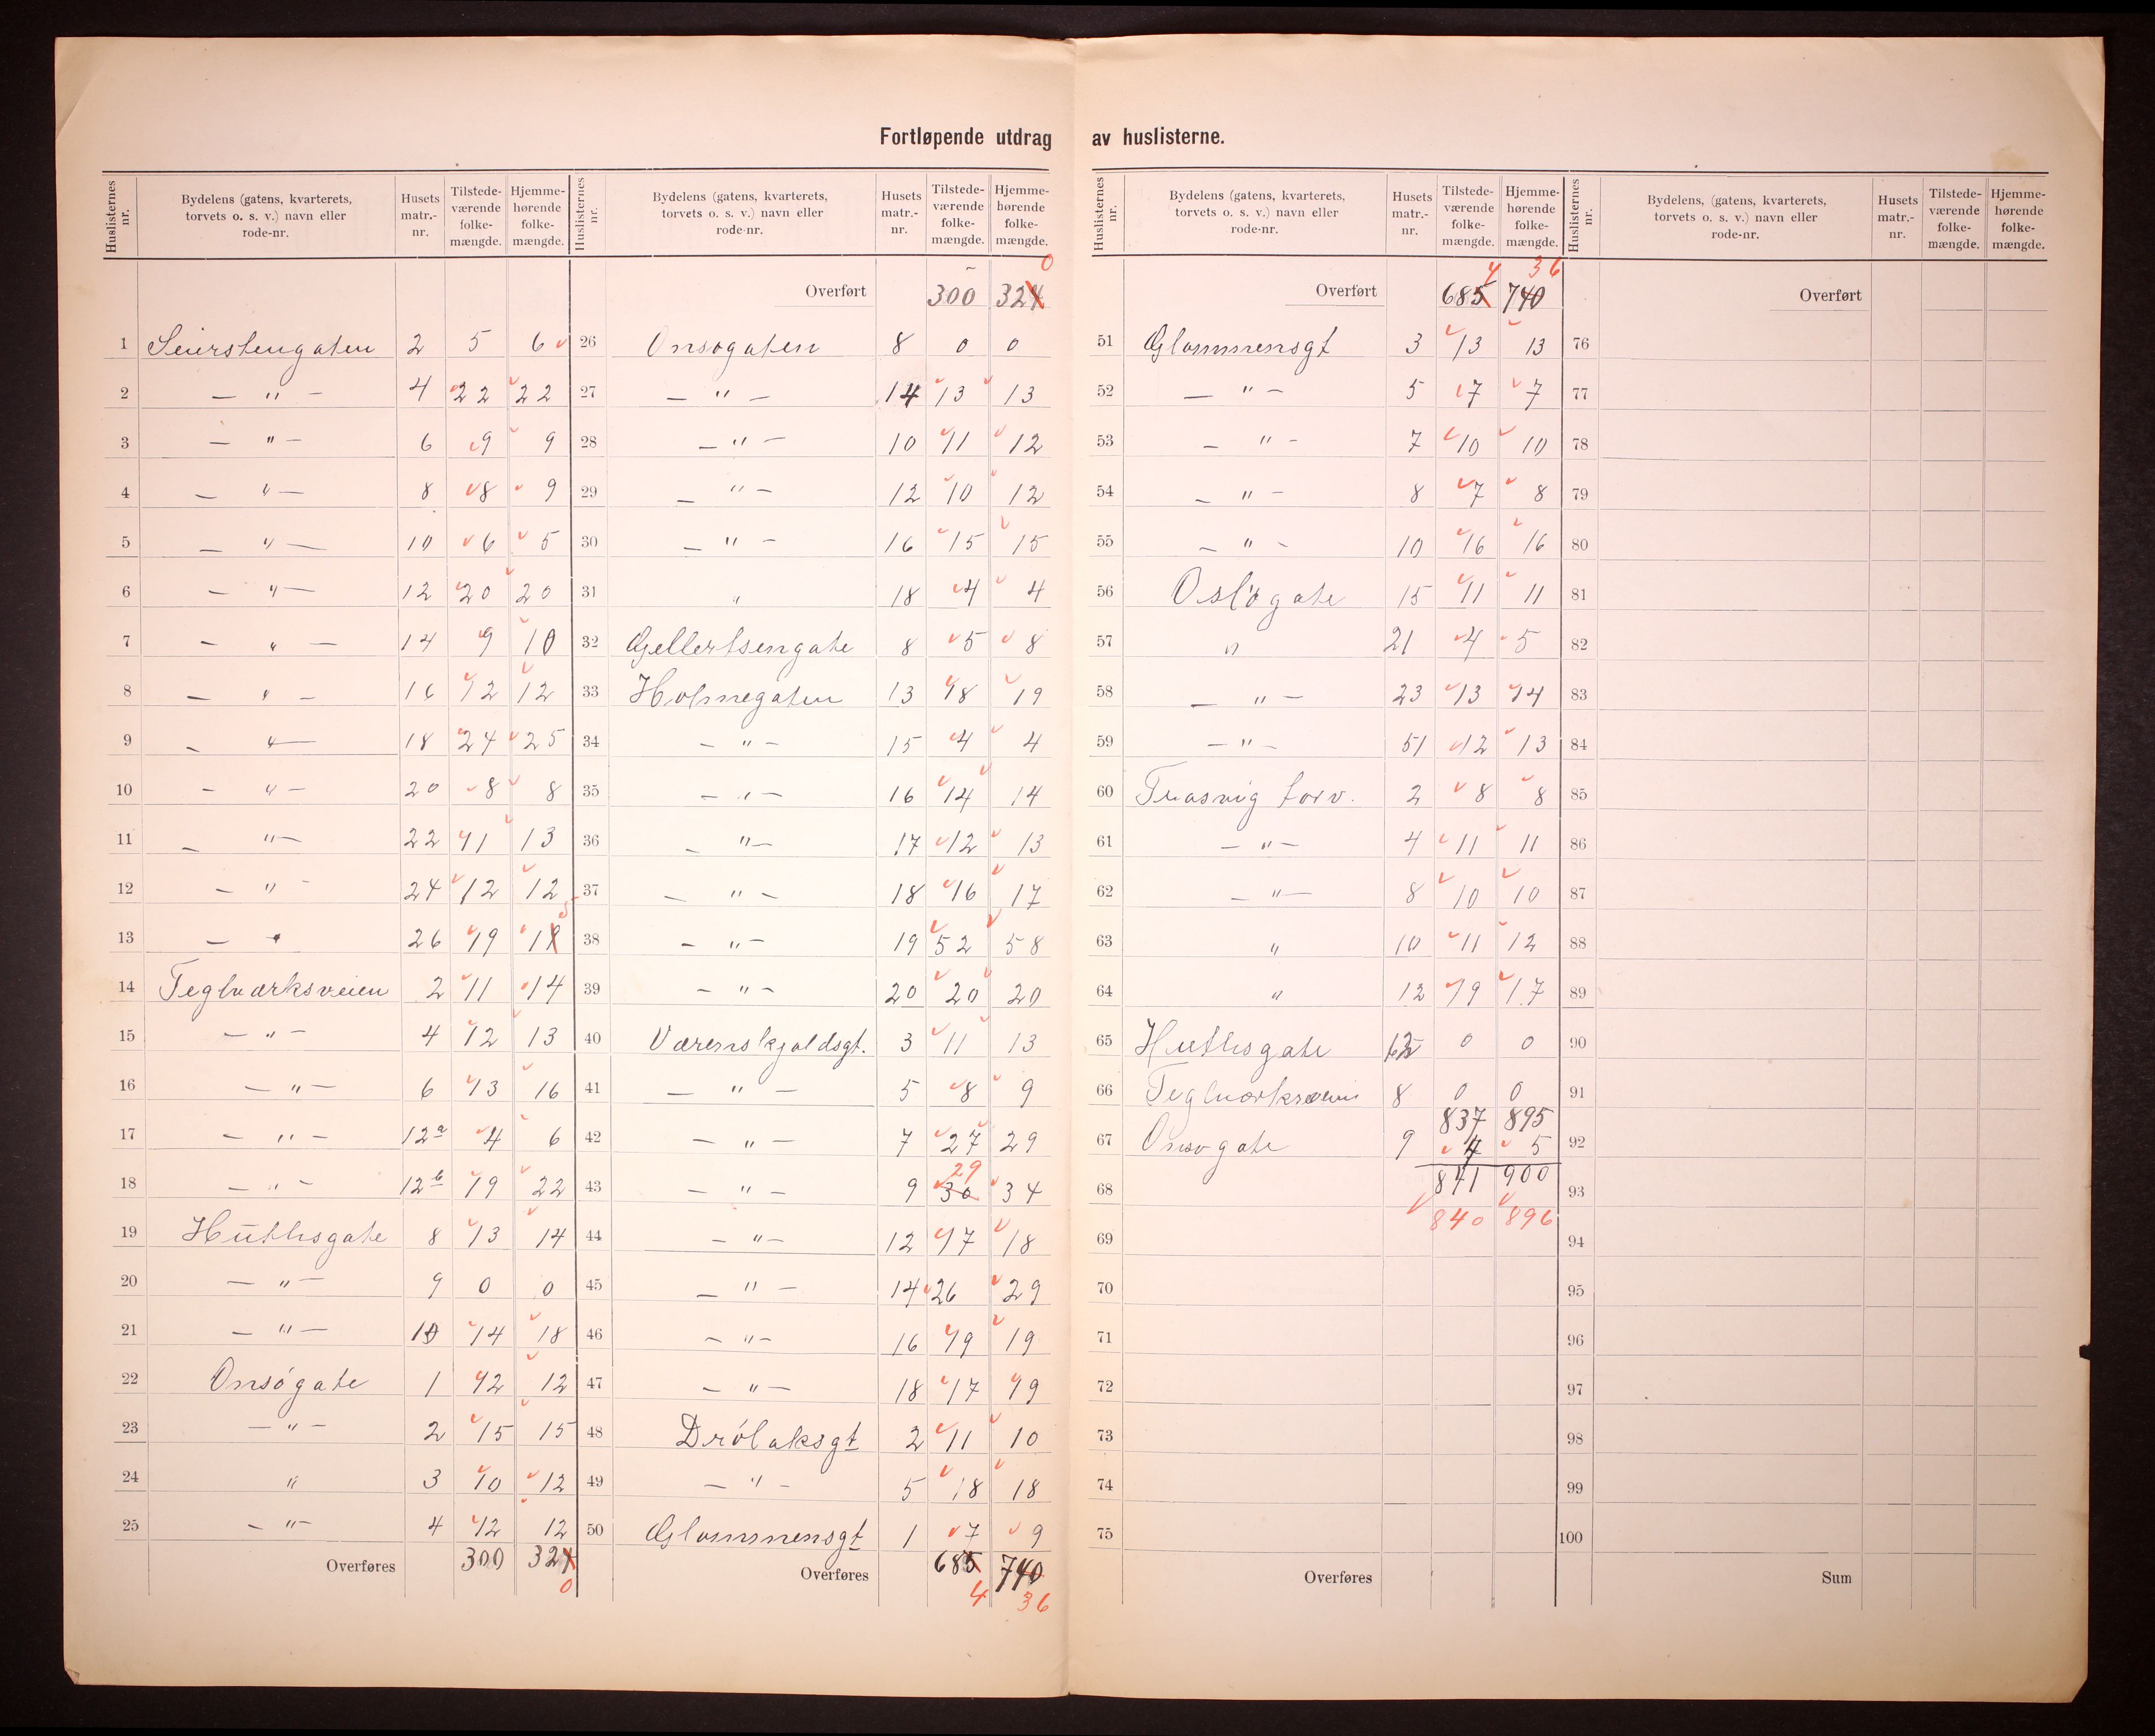 Fortløpende utdrag av huslisterne.
Huslisternes nr. | Bydelens (gatens, kvarterets, torvets o. s. v.) navn eller rode-nr. | Husets matr.-nr. | Tilstede-værende folke-mængde. | Hjemme-hørende folke-mængde.
1 Seierstengaten 2 5 6
2 — " — 4 22 22
3 — " — 6 9 9
4 — " — 8 8 9
5 — " — 10 6 5
6 — " — 12 20 20
7 — " — 14 9 10
8 — " — 16 12 12
9 — " — 18 24 25
10 — " — 20 8 8
11 — " — 22 11 13
12 — " — 24 12 12
13 — " 26 19 1
14 Teglværksveien 2 11 14
15 — " — 4 12 13
16 — " — 6 13 16
17 — " — 12a 4 6
18 — " — 12b 19 22
19 Huthsgate 8 13 14
20 — " — 9 0 0
21 — " — 10 14 18
22 Onsøgate 1 12 12
23 — " — 2 15 15
24 " 3 10 12
25 — " — 4 12 12
Overføres 300 324
0
Huslisternes nr. | Bydelens (gatens, kvarterets, torvets o. s. v.) navn eller rode-nr. | Husets matr.-nr. | Tilstede-værende folke-mængde. | Hjemme-hørende folke-mængde.
0
Overført 300 324
26 Onsøgaten 8 0 0
27 — " — 14 13 13
28 — " — 10 11 12
29 — " — 12 10 12
30 — " — 16 15 15
31 " 18 4 4
32 Gellertsengate 8 5 8
33 Holmegaten 13 18 19
34 — " — 15 4 4
35 — " — 16 14 14
36 — " — 17 12 13
37 — " — 18 16 17
38 — " — 19 52 58
39 — " — 20 20 20
40 Værenskjoldsgt. 3 11 13
41 — " — 5 8 9
42 — " — 7 27 29
29
43 — " — 9 30 34
44 — " — 12 17 18
45 — " — 14 26 29
46 — " — 16 19 19
47 — " — 18 17 19
48 Drøbaksgt 2 11 10
49 — " — 5 18 18
50 Glommensgt 1 7 9
Overføres 685 740
4 36
Huslisternes nr. | Bydelens (gatens, kvarterets, torvets o. s. v.) navn eller rode-nr. | Husets matr.-nr. | Tilstede-værende folke-mængde. | Hjemme-hørende folke-mængde.
4 36
Overført 685 740
51 Glommensgt 3 13 13
52 — " — 5 7 7
53 — " — 7 10 10
54 — " — 8 7 8
55 — " — 10 16 16
56 Osløgate 15 11 11
57 " 21 4 5
58 — " — 23 13 14
59 — " — 51 12 13
60 Trasvig torv. 2 8 8
61 — " — 4 11 11
62 — " — 8 10 10
63 " 10 11 12
64 " 12 19 17
65 Huthsgate 0 0
66 Teglværksveien 8 0 0
837 895
67 Onsøgate 9 4 5
68 841 900
840 896
69
70
71
72
73
74
75
Overføres
Huslisternes nr. | Bydelens, (gatens, kvarterets, torvets o. s. v.) navn eller rode-nr. | Husets matr.-nr. | Tilstede-værende folke-mængde. | Hjemme-hørende folke-mængde.
Overført
76
77
78
79
80
81
82
83
84
85
86
87
88
89
90
91
92
93
94
95
96
97
98
99
100
Sum